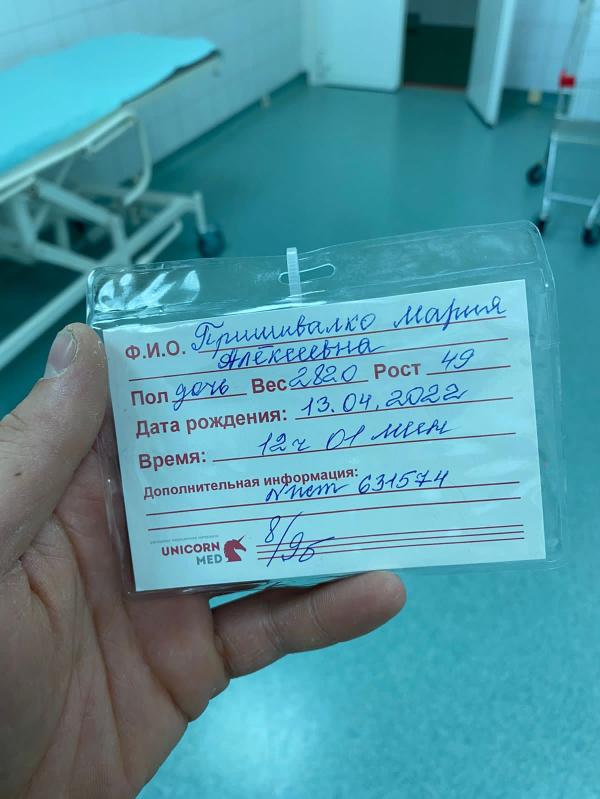 Ф.И.О. Пришивалко Мария
Алексеевна
Пол дочь Вес 2820 Рост 49
Дата рождения: 13.04.2022
Время: 12ч 01 мин
Дополнительная информация:
631574
8/9б
UNICORN
MED